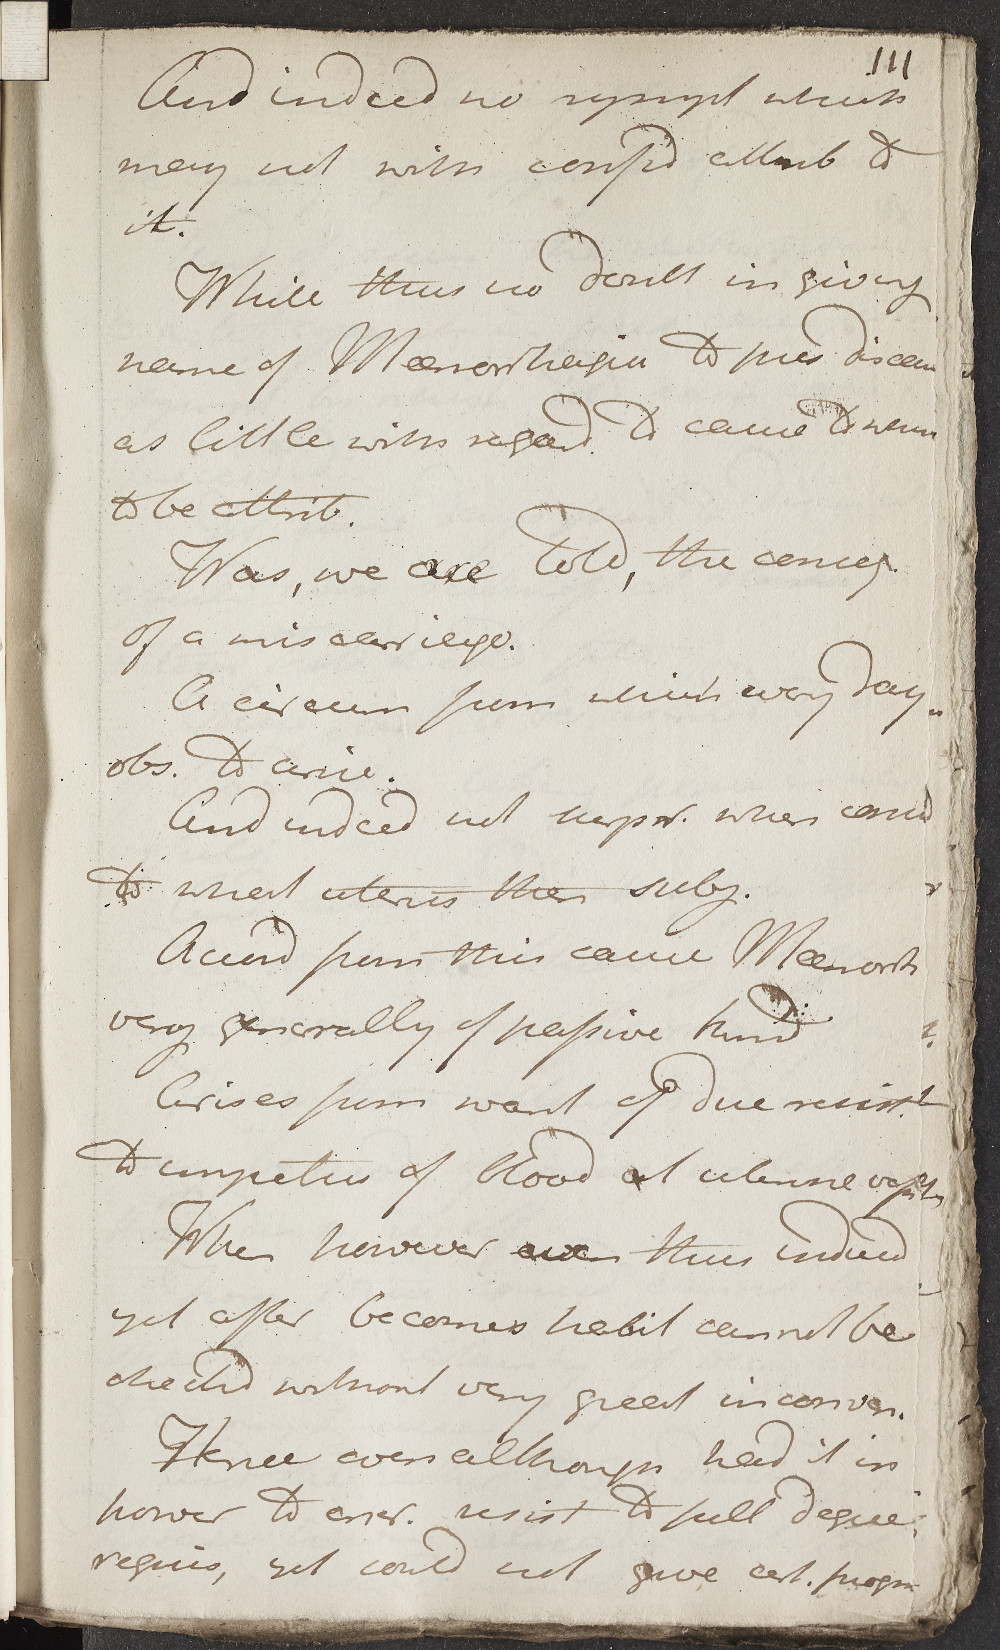 111
And indeed no sympt which
may not with conf'd attrib to
it.
While thus no doubt in giving
name of Mænorrhagia to pres disease
as little with regard to cause to whch
to be attrib.
Was, we are told, the conseq.
of a miscarriage.
A circum from which every day
obs. to arise.
And indeed not surpr. when consid
to what uterus then subj.
Accord from this cause Mænorrh
very generally of passive kind
Arises from want of due resist
to impetus of blood at uterine vessels
When however even thus induced
yet after becomes habit cannot be
check'd without very great inconven.
Hence even although had it in
power to encr. resist to full degree
requis, yet could not give cert. progn